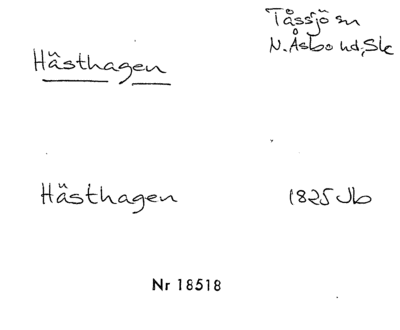 Tåssjö sn
Hästhagen
N. Åsbo hd, Sk
Hästhagen
1825 Jb
Nr 18518